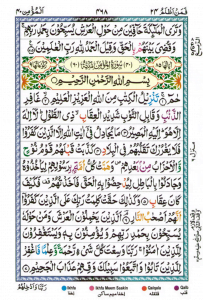 فمن اظلم
المؤمن ٤٠
وَتَرَى الْمَلٰٓئِكَةَ حَآفِّيْنَ مِنْ حَوْلِ الْعَرْشِ يُسَبِّحُوْنَ بِحَمْدِ رَبِّهِمْ
وَقُضِيَ بَيْنَهُمْ بِالْحَقِّ وَقِيْلَ الْحَمْدُ لِلّٰهِ رَبِّ الْعٰلَمِيْنَ
بِسْمِ اللّٰهِ الرَّحْمٰنِ الرَّحِيْمِ
حٰمٓ تَنْزِيْلُ الْكِتٰبِ مِنَ اللّٰهِ الْعَزِيْزِ الْعَلِيْمِ غَافِرِ
الذَّنْۢبِ وَقَابِلِ التَّوْبِ شَدِيْدِ الْعِقَابِ ذِي الطَّوْلِ لَآ اِلٰهَ
اِلَّا هُوَ اِلَيْهِ الْمَصِيْرُ مَا يُجَادِلُ فِيْٓ اٰيٰتِ اللّٰهِ اِلَّا الَّذِيْنَ
كَفَرُوْا فَلَا يَغْرُرْكَ تَقَلُّبُهُمْ فِي الْبِلَادِ كَذَّبَتْ قَبْلَهُمْ قَوْمُ نُوْحٍ
وَّالْاَحْزَابُ مِنْۢ بَعْدِهِمْ وَهَمَّتْ كُلُّ اُمَّةٍۢ بِرَسُوْلِهِمْ لِيَاْخُذُوْهُ
وَجَادَلُوْا بِالْبَاطِلِ لِيُدْحِضُوْا بِهِ الْحَقَّ فَاَخَذْتُهُمْ فَكَيْفَ كَانَ
عِقَابِ وَكَذٰلِكَ حَقَّتْ كَلِمَتُ رَبِّكَ عَلَى الَّذِيْنَ كَفَرُوْٓا
اَنَّهُمْ اَصْحٰبُ النَّارِ اَلَّذِيْنَ يَحْمِلُوْنَ الْعَرْشَ وَمَنْ حَوْلَهٗ
يُسَبِّحُوْنَ بِحَمْدِ رَبِّهِمْ وَيُؤْمِنُوْنَ بِهٖ وَيَسْتَغْفِرُوْنَ
لِلَّذِيْنَ اٰمَنُوْا رَبَّنَا وَسِعْتَ كُلَّ شَيْءٍ رَّحْمَةً وَّعِلْمًا فَاغْفِرْ
لِلَّذِيْنَ تَابُوْا وَاتَّبَعُوْا سَبِيْلَكَ وَقِهِمْ عَذَابَ الْجَحِيْمِ
Ikhfa Meem Saakin
Qalqala